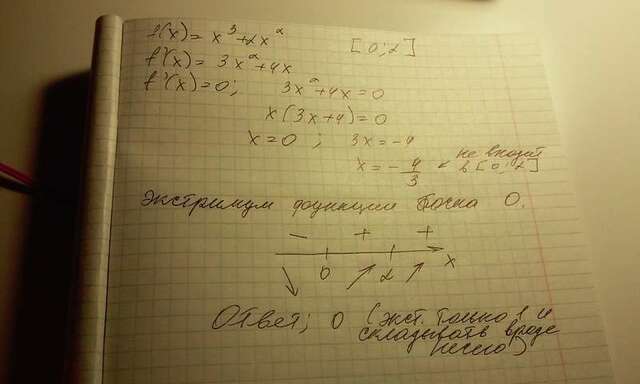 f(x) = x³+2x² [0;2]
f'(x) = 3x²+4x
f'(x)=0; 3x²+4x=0
x(3x+4)=0
x=0 ; 3x=-4
x=-4/3 не входит
в [0;2]
Экстримум функции точка 0.
- + +
0 2 x
Ответ; 0 (экст. только 1 и
складывать вроде
нечего)